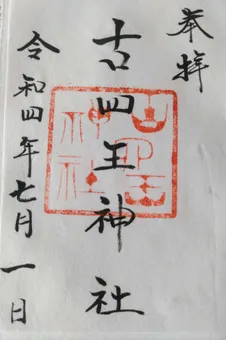 奉拝
古四王神社
令和四年七月一日
古四王
神社